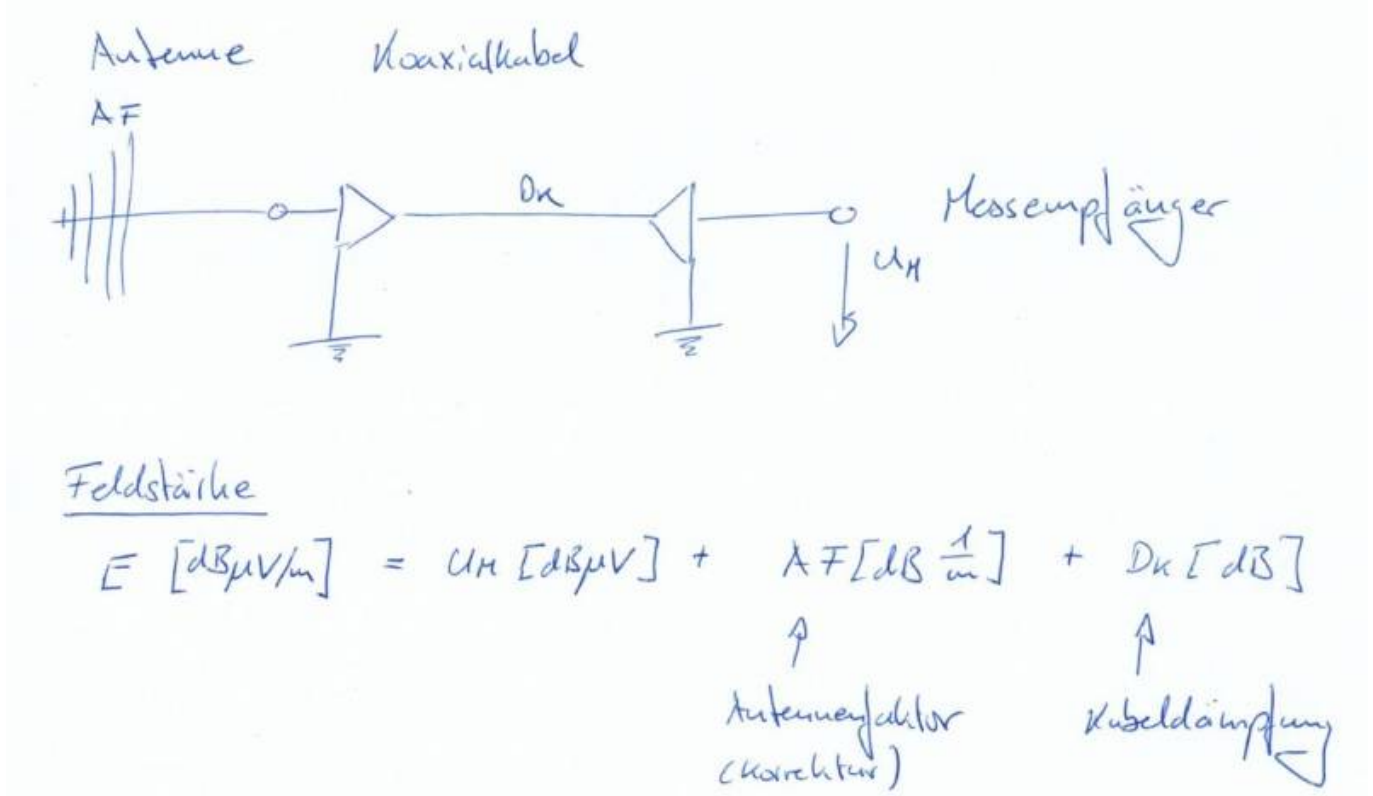 Antenne Koaxialkabel
AF
DK
Messempfänger
UM
Feldstärke
E [dBµV/m] = UM [dBµV] + AF [dB 1/m] + DK [dB]
Antennenfaktor Kabeldämpfung
(Korrektur)